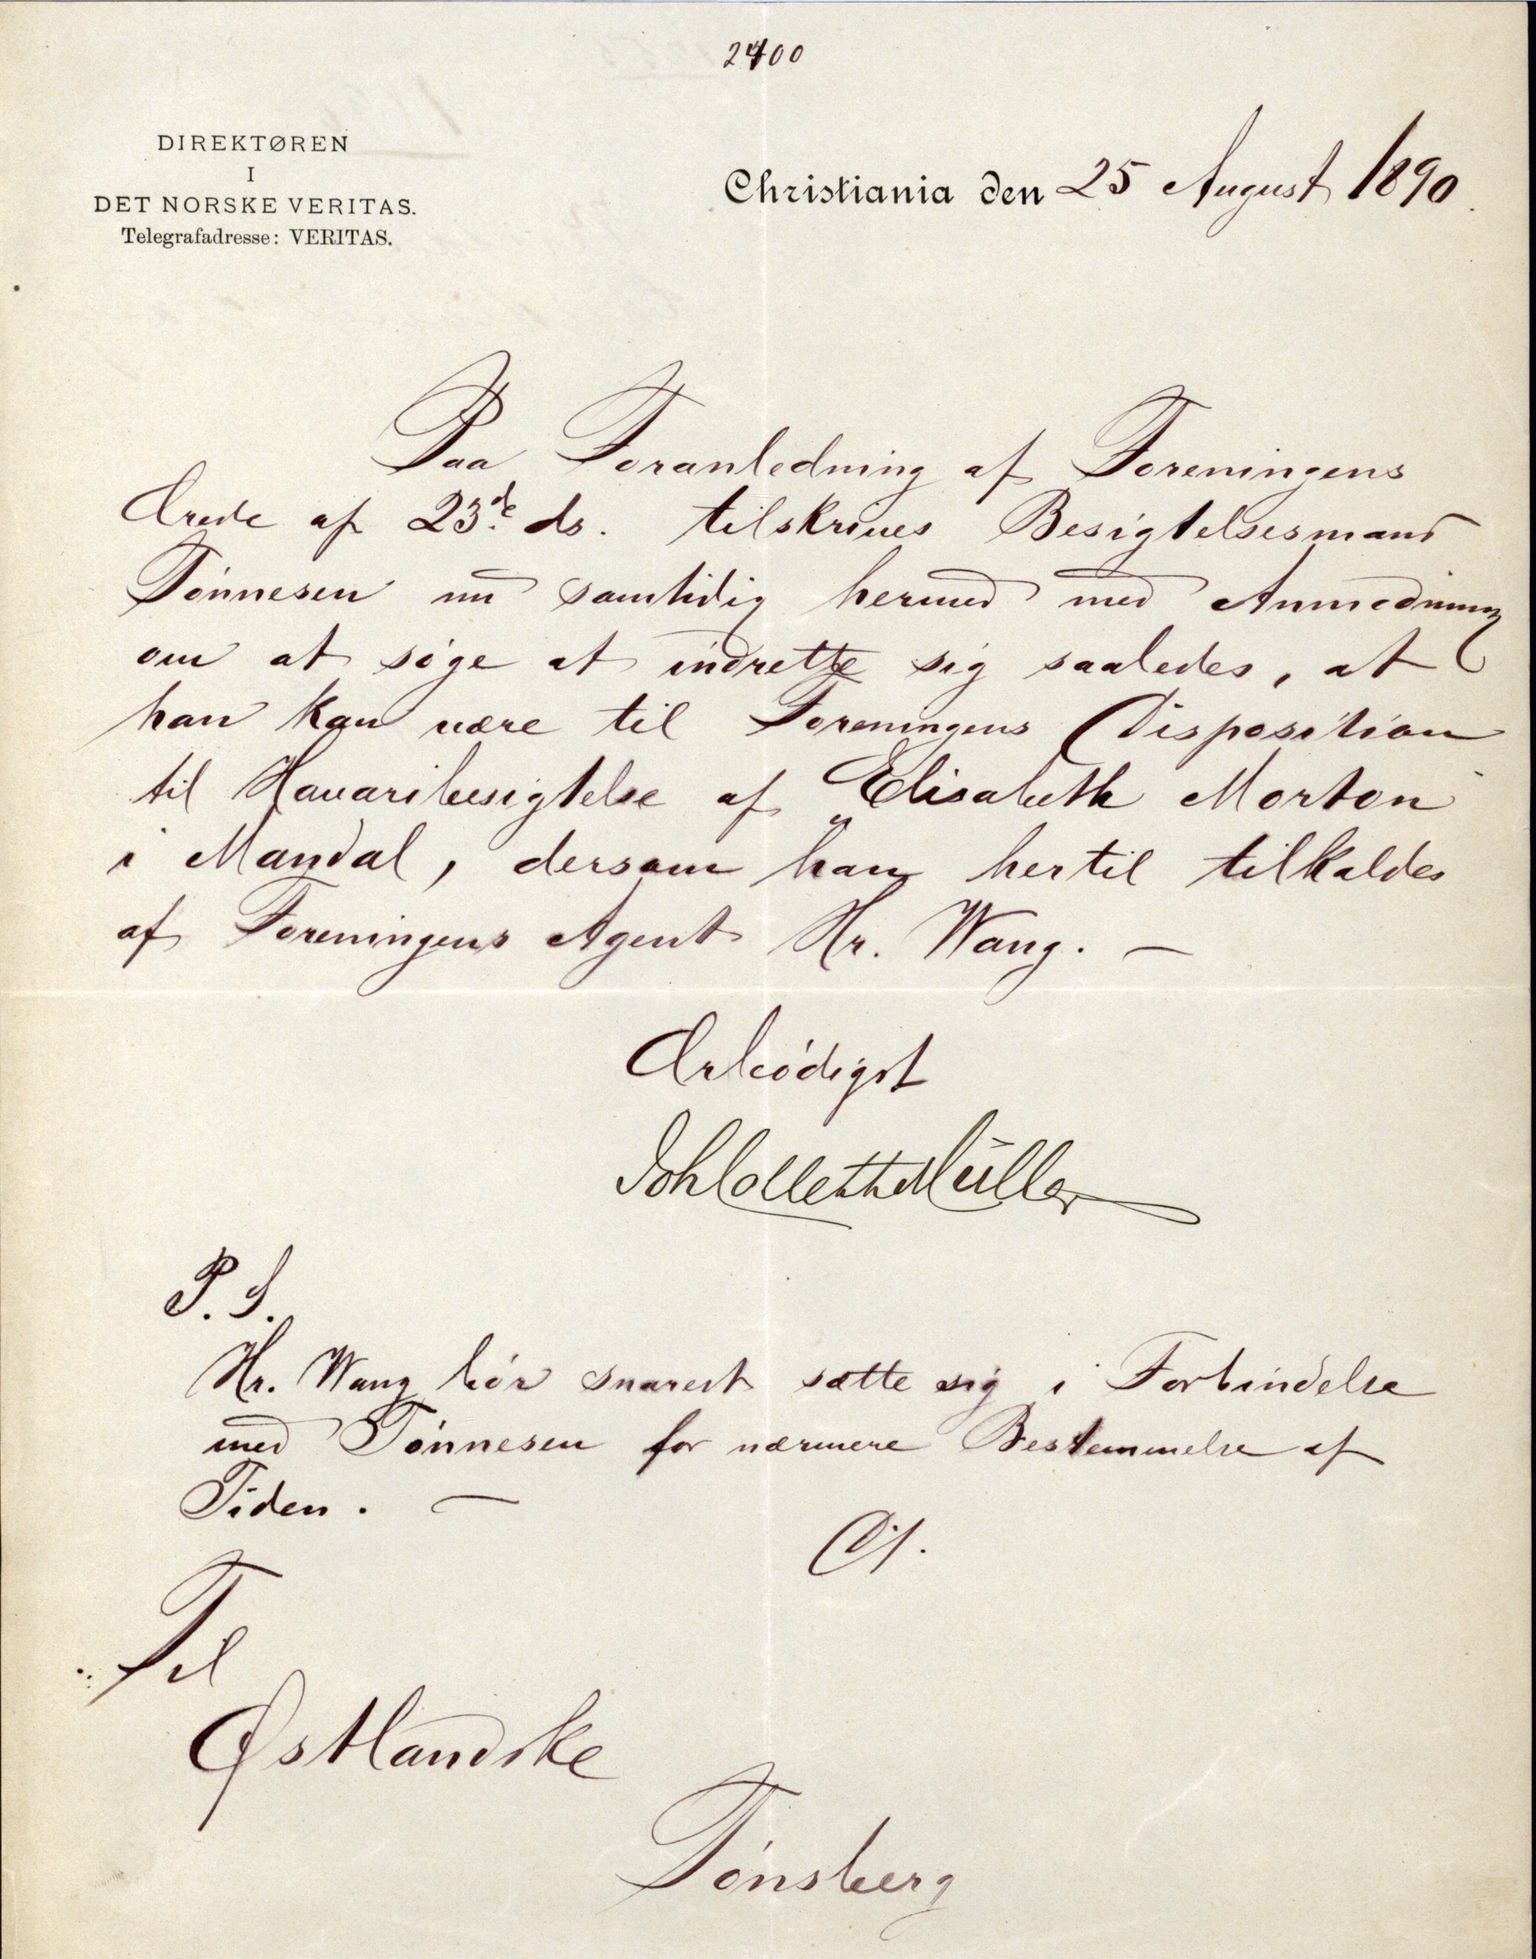 2400
DIREKTØREN
I
DET NORSKE VERITAS.
Telegrafadresse: VERITAS.
Christiania den 25 August 1890
Paa Foranledning af Foreningens
Ærede af 23de ds. tilskrives Besigtelsesmand
Tönnesen nu samtidig hermed med Anmodning
om at söge at indrette sig saaledes, at
han kan være til Foreningens Disposition
til Havaribesigtelse af "Elisabeth Morton"
i Mandal, dersom han hertil tilkaldes
af Foreningens Agent Hr. Wang. —
Ærbödigst
Joh Collett Müller
P. S.
Hr. Wang bör snarest sætte sig i Forbindelse
med Tönnesen for nærmere Bestemmelse af
Tiden. —
Til
Østlandske
Tönsberg